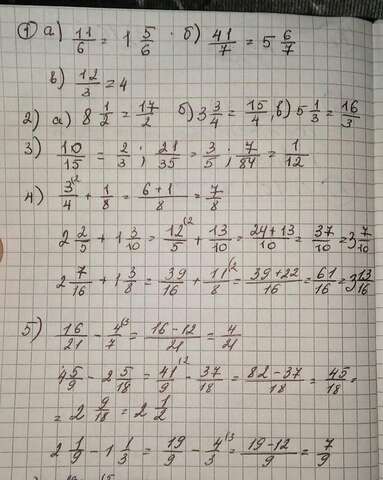 1 а) 11/6 = 1 5/6 · б) 41/7 = 5 6/7
в) 12/3 = 4
2) а) 8 1/2 = 17/2 б) 3 3/4 = 15/4, в) 5 1/3 = 16/3
3) 10/15 = 2/3; 21/35 = 3/5; 7/84 = 1/12
4) 3/4 (2 + 1/8 = 6+1/8 = 7/8
2 2/5 + 1 3/10 = 12/5 (2 + 13/10 = 24+13/10 = 37/10 = 3 7/10
2 7/16 + 1 3/8 = 39/16 + 11/8 (2 = 39+22/16 = 61/16 = 3 13/16
5) 16/21 - 4/7 (3 = 16-12/21 = 4/21
4 5/9 - 2 5/18 = 41/9 (2 - 37/18 = 82-37/18 = 45/18 =
= 2 9/18 = 2 1/2
2 1/9 - 1 1/3 = 19/9 - 4/3 (3 = 19-12/9 = 7/9